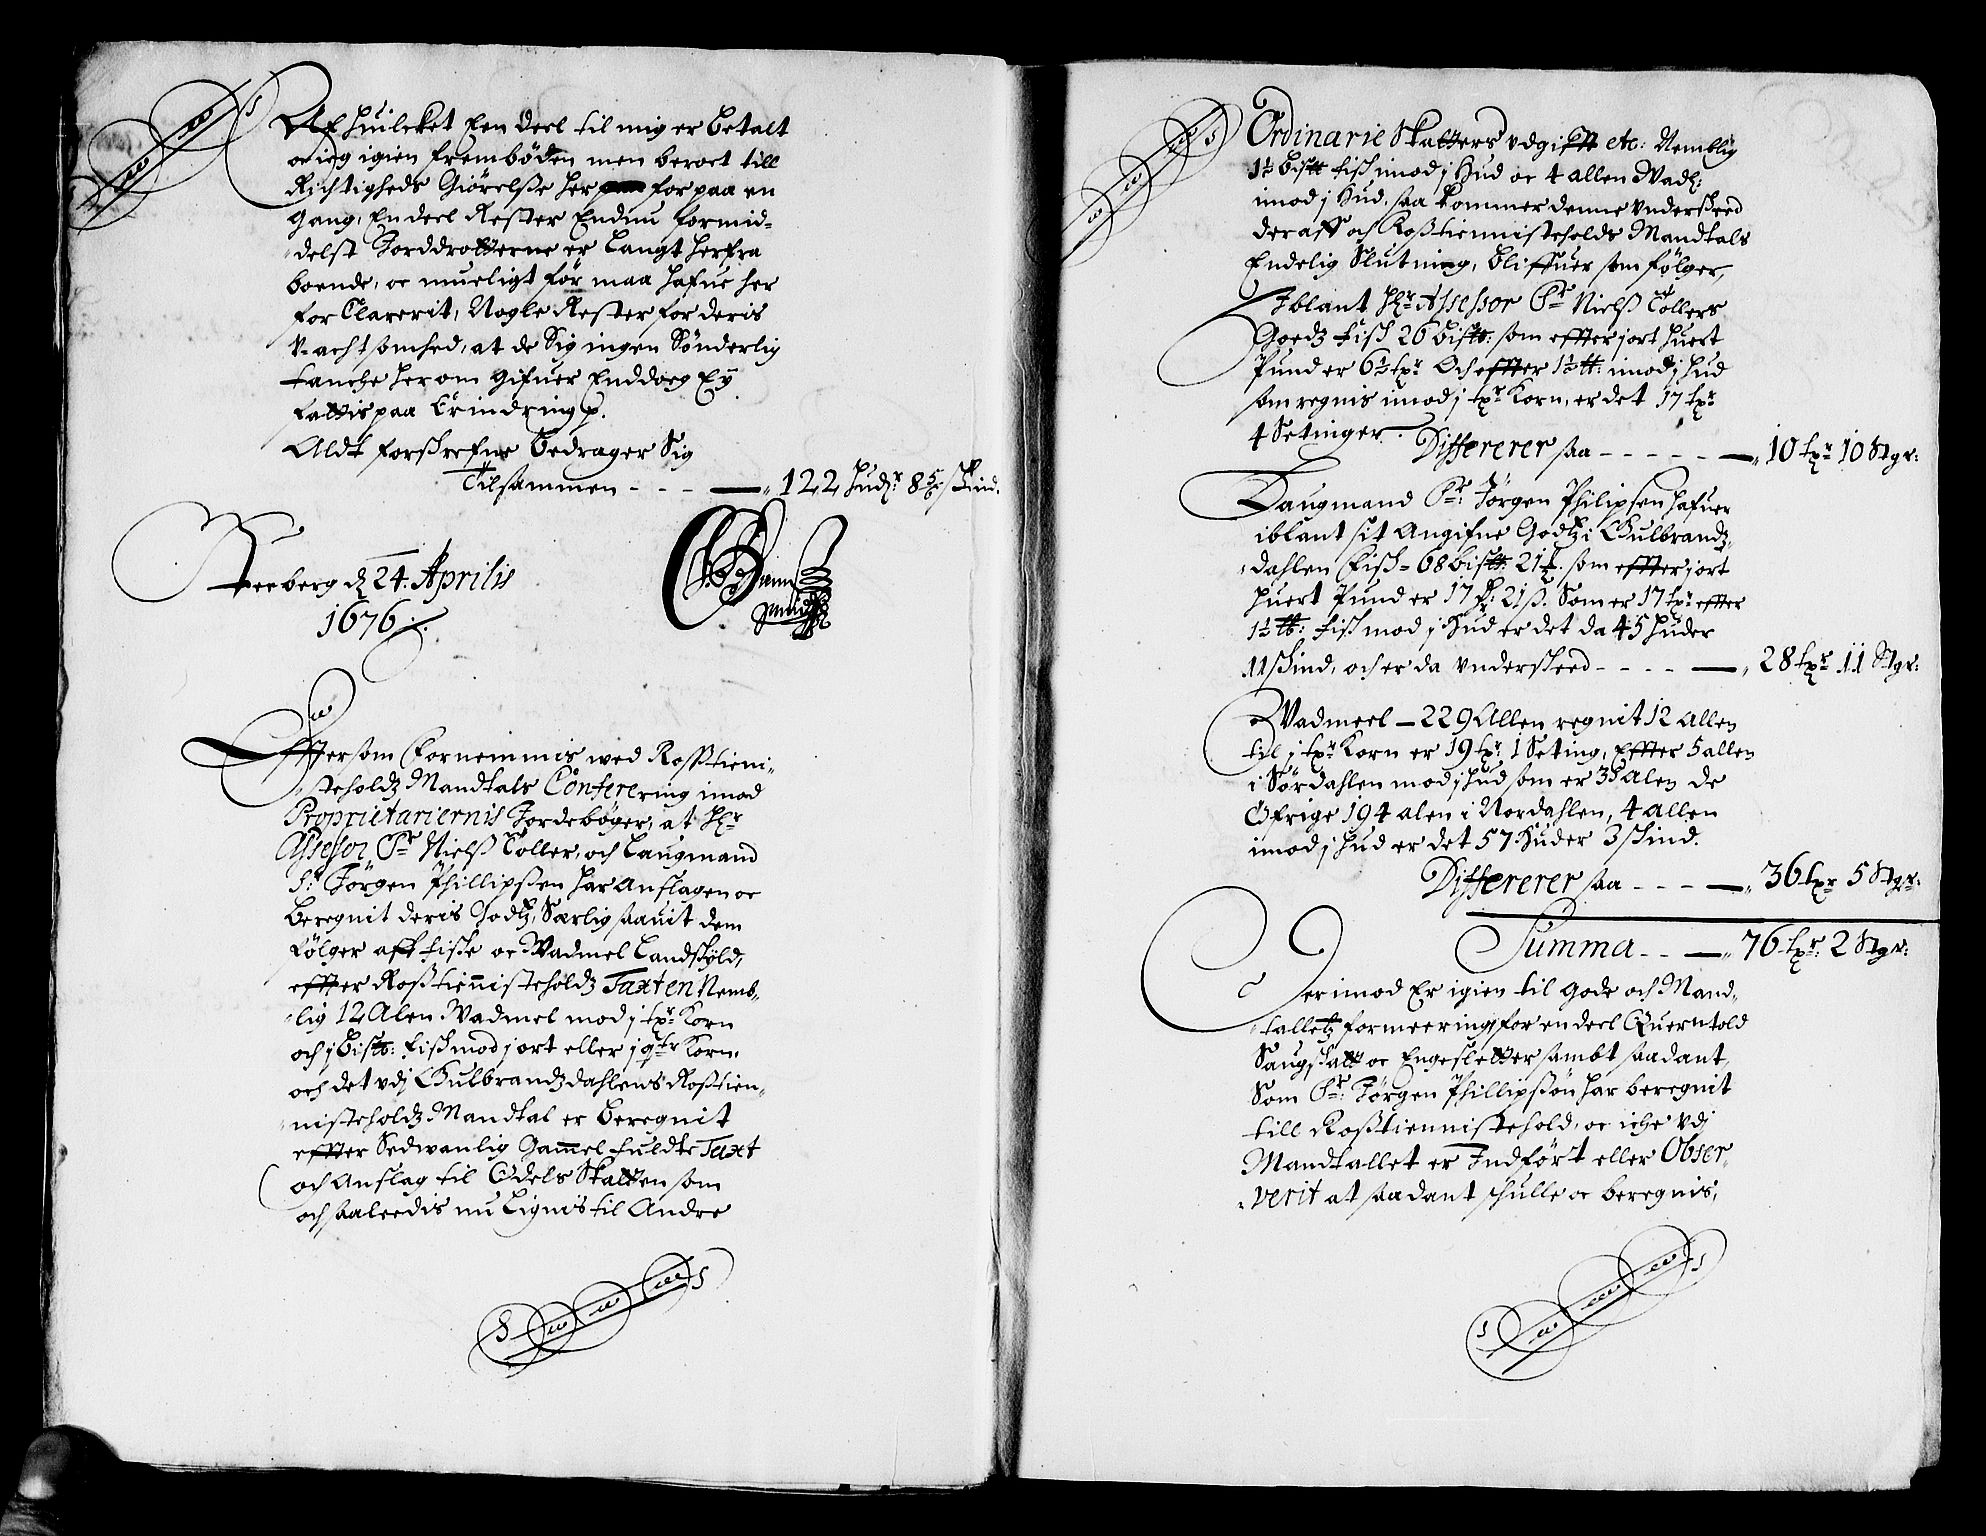 Af huilcket Een deel til mig er betalt
oc ieg igien frembøden men beroet till
Richtigheds Giørelsse her for paa en
gang, En deel Rester Endnu formid-
delst Jorddrotterne er langt herfra
boende, oc mueligt før maa hafue her
for Clarerit, Nogle Rester for deris
V-achtsomhed, at de Sig ingen Sønderlig
tanche her om gifuer Enddoeg Ey
fattis paa Erindring p.
Aldt forskrefne bedrager Sig
Tilsammen - - - 122 hud: 8 skind.
berg d 24: Aprilis
1676
Effter som fornemmis wed Rosstieni-
steholdz Mandtals Confererring imod
Proprietariernis Jordebøger, at Hr
Assessor Sr Nielss Toller, och Laugmand
Sr Jørgen Phillipssen har anslagen oc
beregnit deris Godtz, Særlig saauit dem
følger aff fiske oc Wadmel Landskyld,
effter Rosstiennisteholdz Taxten Nemb-
lig 12 Alen Wadmel mod j tpr Korn
och j Bistt: fisk mod j ort eller j qtr Korn,
och det vdj Gulbrandzdahlens Rosstien-
nisteholdz Mandtal er beregnit
effter Sedwanlig Gammel fuldte Taxt
och anslag til Odels Skatten som
och saaleedis nu Lignis til Andre
Ordinarie Skatters vdgifft etc: Nemblig
1½ Bistt fisk imod j hud oc 4 allen Wadl:
imod j Hud, saa kommer denne vnderskeed
deraff och Rosstiennisteholds Mandtals
Endelig Slutning, bliffuer som følger,
Iblant Hr Assessor Sr Nielss Tollers
Goedz fisk 26 Bistt: som effter j ort huert
Pund er 6½ tpr Och effter 1½ tt: imod j hud
som regnis imod j tpr Korn, er det 17 tpr
4 Setinger. Differerer saa - - - - - 10 tpr 10 Stgr:
Laugmand Sr: Jørgen Philipsen hafuer
iblant sit Angifne Godtz i Gulbrandz-
dahlen Fisk = 68 bistt: 21 . som effter j ort
huert Pund er 17 : 21 ß. Som er 17 tpr effter
1½ tt: fisk mod j Hud er det da 45 huder
11 skind, och er da vnderskeed - - - - 28 tpr 11 Stgr:
Wadmeel - 229 Allen regnit 12 Allen
til j tpr Korn er 19 tpr 1 Seting, Effter 5 allen
i Sørdahlen mod j hud som er 35 Alen de
Øfrige 194 alen i Nordahlen, 4 allen
imod j hud er det 57 Huder 3 skind.
Differerer saa - - - 36 tpr 5 Stgr:
Summa - - 76 tpr: 2 Stgr:
Herimod Er igien til gode och Mand-
talletz formeering for en deel Querntold
Saugskatt oc Engesletter sambt saadant
Som Sr: Jørgen Phillipssøn har beregnit
till Rosstiennistehold, oc iche vdj
Mandtallet er Indført eller Obser-
verit at saadant schulle oc beregnis,